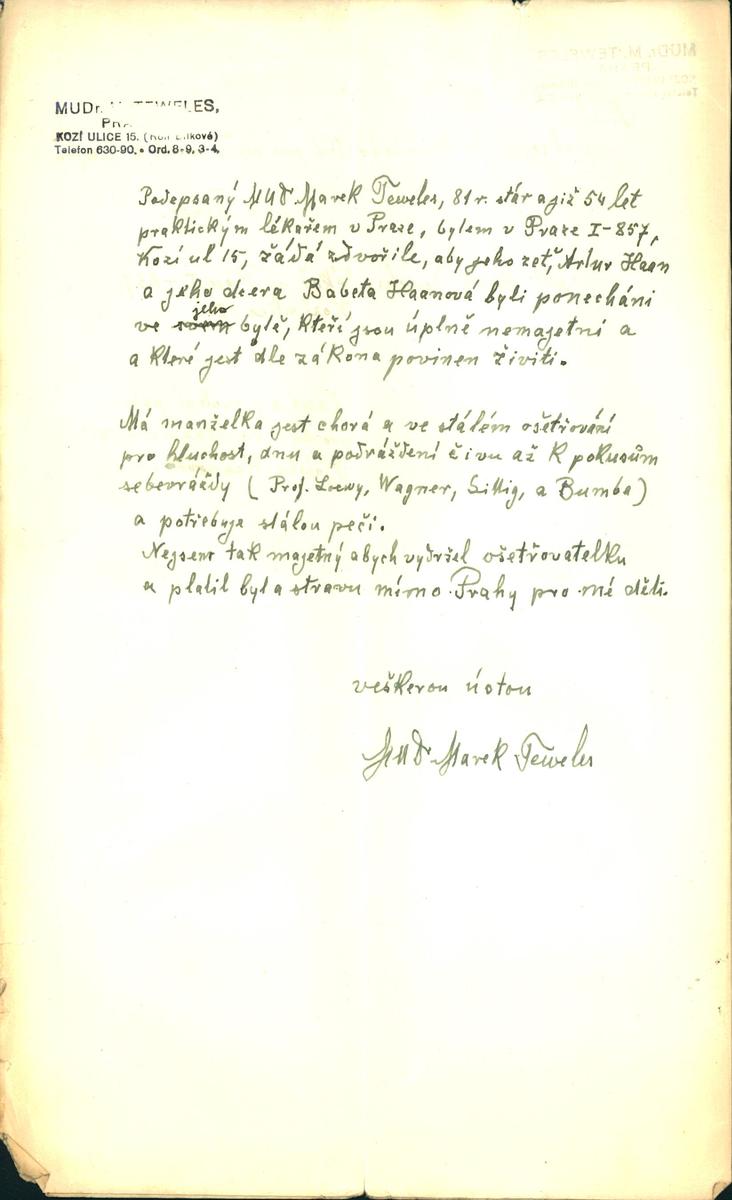 MUDr. M. TEWELES,
PRA
KOZÍ ULICE 15. (Roh Bílkové)
Telefon 630-90. • Ord. 8-9, 3-4.
Podepsaný MUDr Marek Teweles, 81 r. stár a již 54 let
praktickým lékařem v Praze, bytem v Praze I-857,
Kozí ul 15, žádá zdvořile, aby jeho zeť, Artur Haan
a jeho dcera Babeta Haanová byli ponecháni
ve jeho bytě, kteří jsou úplně nemajetní a
a které jest dle zákona povinen živiti.
Má manželka jest chorá a ve stálém ošetřování
pro hluchost, dnu a podráždění čivu až k pokusům
sebevraždy (Prof. Loewy, Wagner, Sittig, a Bumba)
a potřebuje stálou peči.
Nejsem tak majetný abych vydržel ošetřovatelku
a platil byt a stravu mimo Prahy pro mé děti.
veškerou úctou
MUDr Marek Teweles